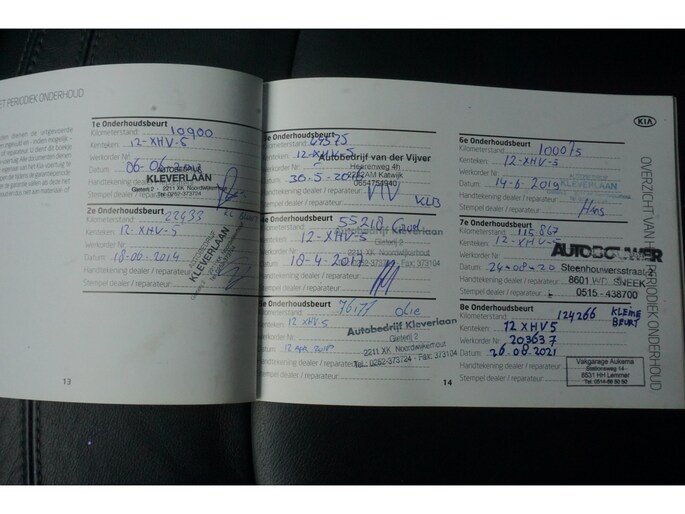 ET PERIODIEK ONDERHOUD
1e Onderhoudsbeurt
Kilometerstand 10900
Kenteken: 12-XHV-5
Werkorder Nr
Datum: 06-06-
AUTOBEDRIJF
KLEVERLAAN
Gieterij 2 - 2211 XK Noordwijkerhout
Handtekening dealer / reparateur
Stempel dealer / reparateur
2e Onderhoudsbeurt
Kilometerstand 22433
Kenteken: 12-XHV-5
Werkorder Nr
Datum: 18-06-2014
AUTOBEDRIJF
KLEVERLAAN
Handtekening dealer / reparateur
Stempel dealer / reparateur
13
e Onderhoudsbeurt
Kilometerstand
Kenteken: 12-XHV-5
Autobedrijf van der Vijver
Werkorder Nr
Heerenweg 4h
Datum: 30-5-
Katwijk
0654754940
Handtekening dealer / reparateur
Stempel dealer / reparateur
e Onderhoudsbeurt
Kilometerstand 55218
Kenteken: 12-XHV-5
Autobedrijf Kleverlaan
Gieterij 2
Werkorder Nr
2211 XK Noordwijkerhout
Datum: 18-4-2017
Handtekening dealer / reparateur
Stempel dealer / reparateur
e Onderhoudsbeurt
Kilometerstand olie
Kenteken: 12 XHV5
Autobedrijf Kleverlaan
Gieterij 2
Werkorder Nr
2211 XK Noordwijkerhout
Datum: 12 APR 2018
Tel. 0252-373724 - Fax: 373104
Handtekening dealer / reparateur
Stempel dealer / reparateur
14
KIA
OVERZICHT VAN HET PERIODIEK ONDERHOUD
6e Onderhoudsbeurt
Kilometerstand 100075
Kenteken: 12-XHV-5
Werkorder Nr
AUTOBEDRIJF
KLEVERLAAN
Datum: 14-6-2019
Handtekening dealer / reparateur Hans
Stempel dealer / reparateur
7e Onderhoudsbeurt
Kilometerstand 115.867
Kenteken: 12-XHV-5
AUTOBOUWER
Werkorder Nr
Datum: 24-08-20
Steenhouwersstraat 2
8601 WD SNEEK
0515 - 438700
Handtekening dealer / reparateur
Stempel dealer / reparateur
8e Onderhoudsbeurt
Kilometerstand 124266 KLEINE BEURT
Kenteken: 12 XHV5
Werkorder Nr 203637
Datum: 26.08.2021
Vakgarage Aukema
Stationsweg 14
8531 HH Lemmer
Handtekening dealer / reparateur
Stempel dealer / reparateur